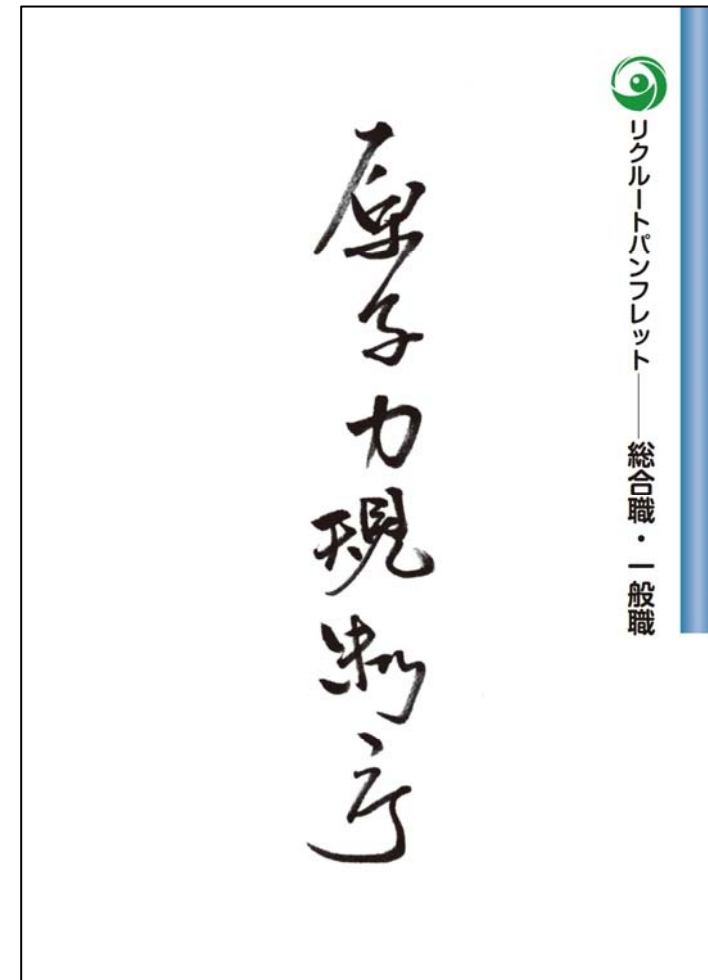 リクルートパンフレット——総合職・一般職
原子力規制庁